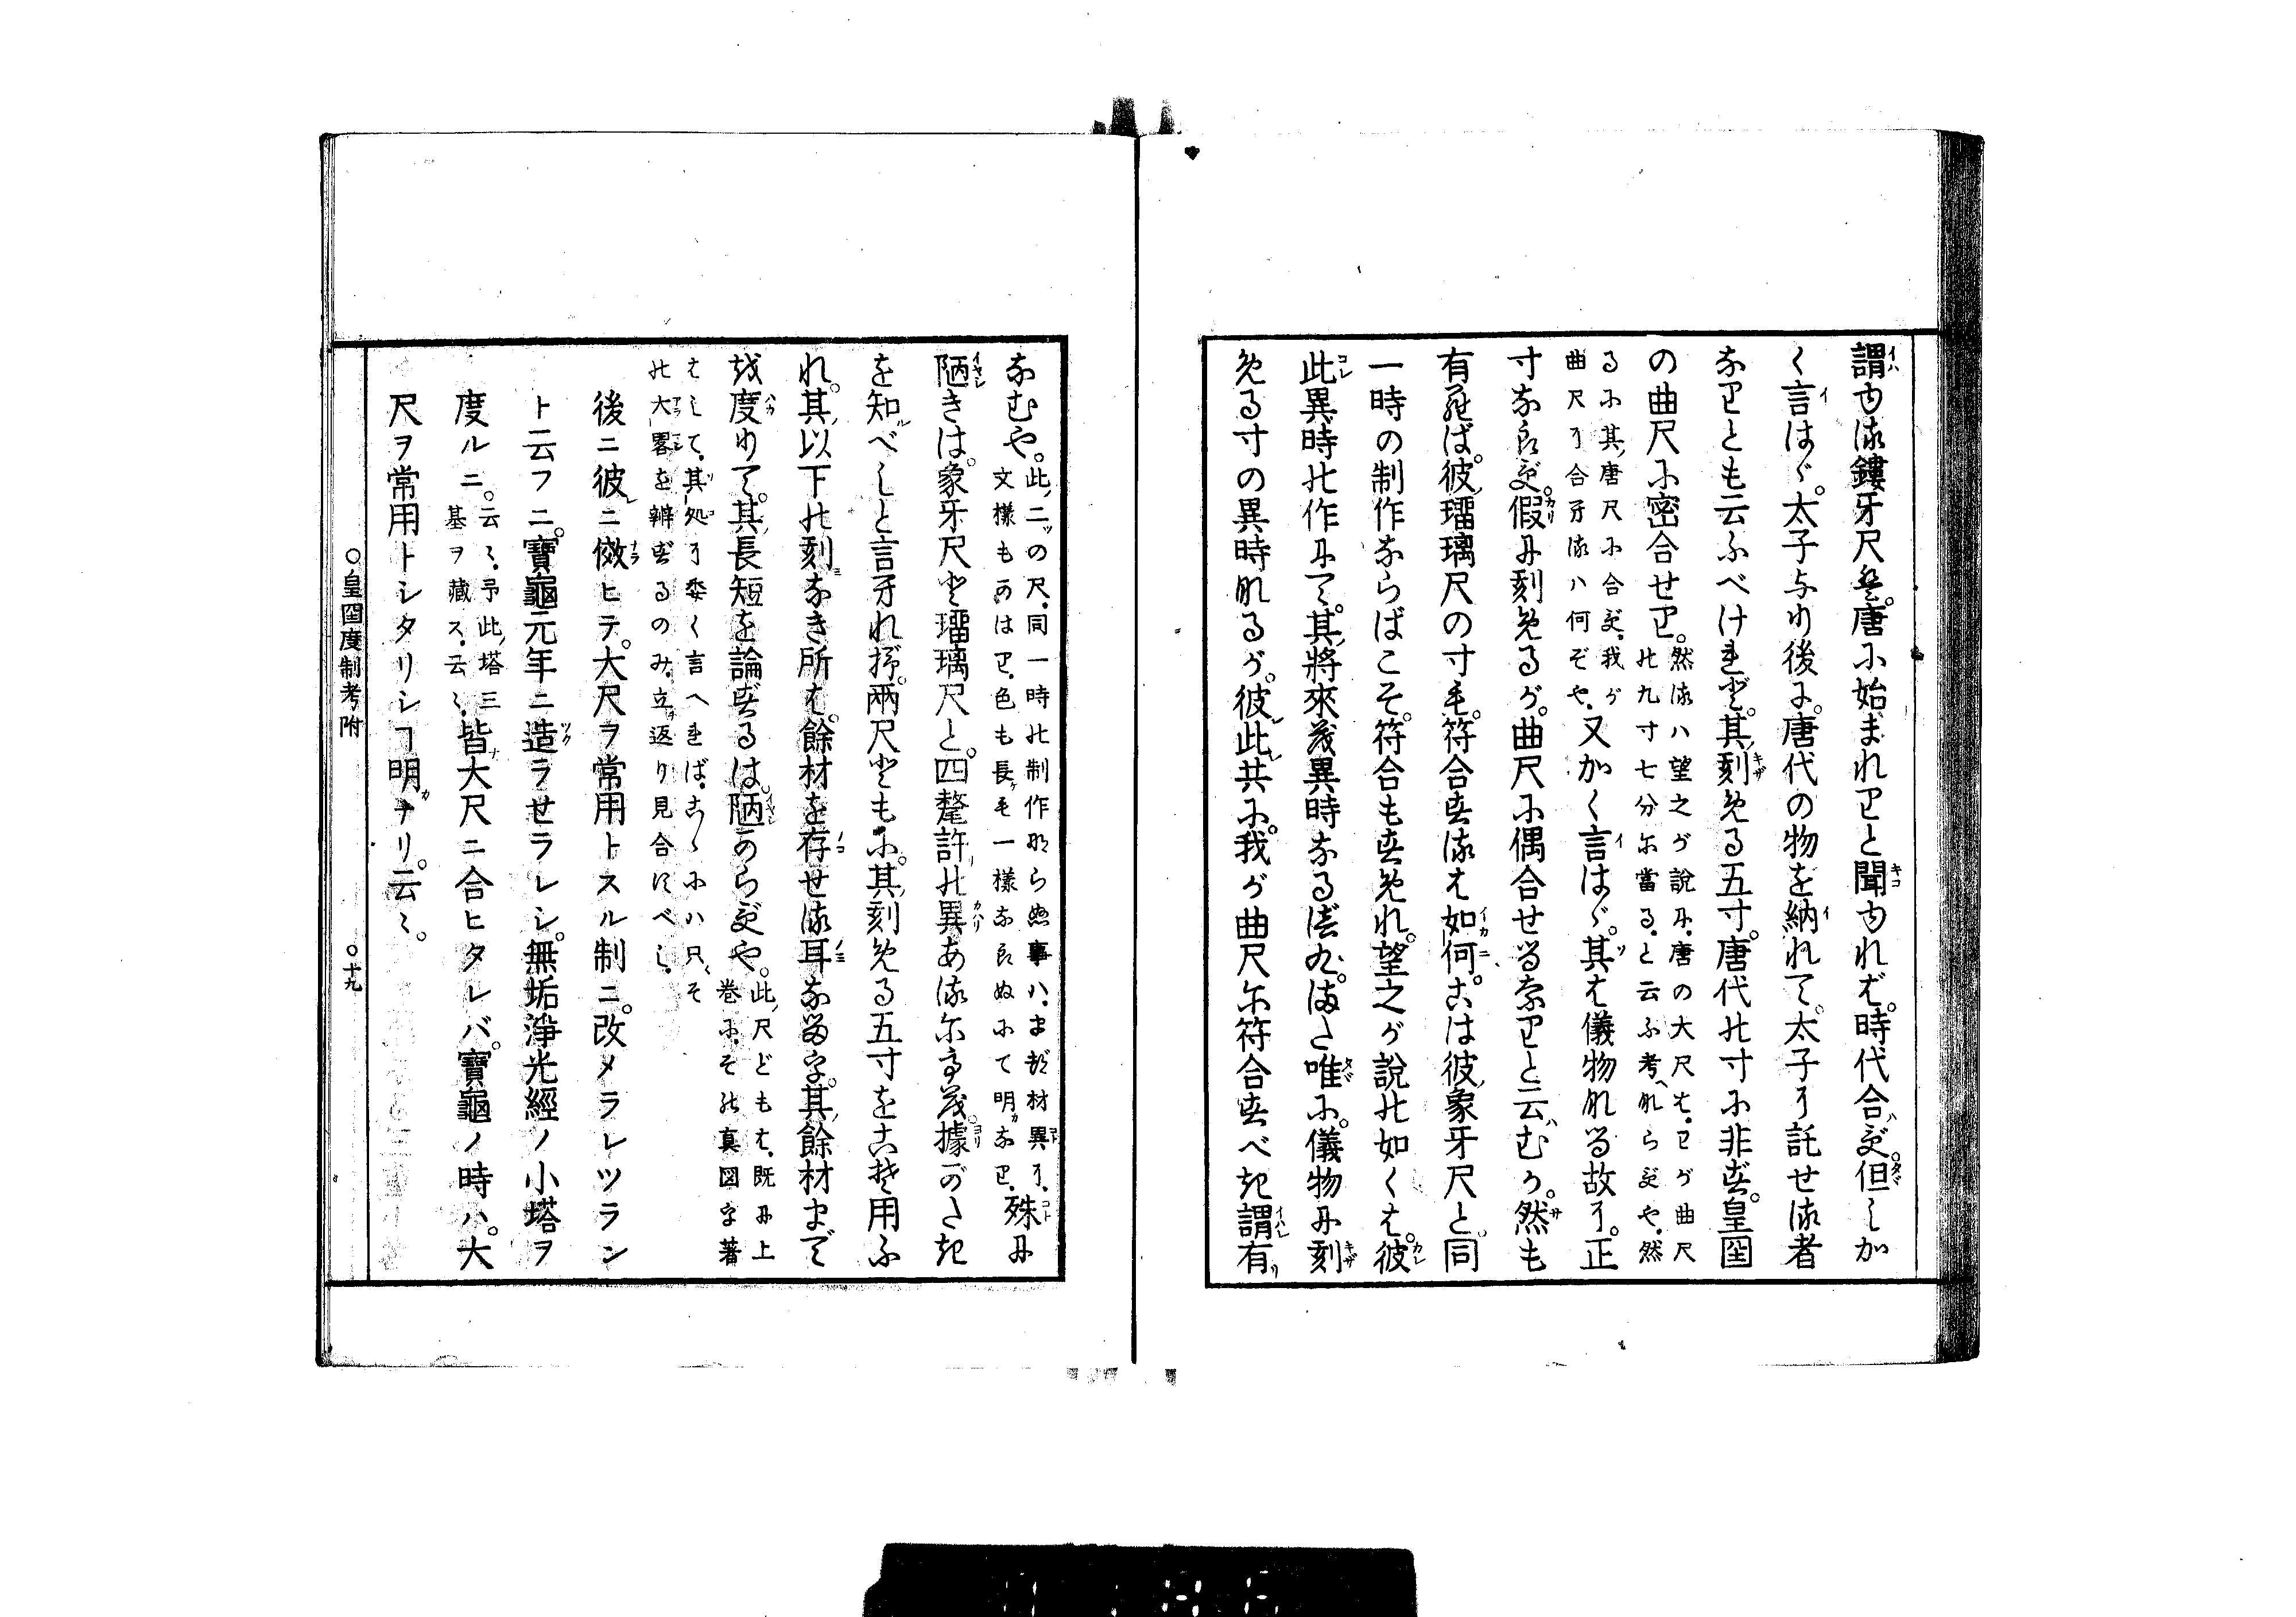 謂ゆる鏤牙尺は。唐に始まれりと聞ゆれば。時代合ず。但しか
く言はゞ。太子より後に。唐代の物を納れて。太子に託せる者
なりとも云ふべけれど。其刻める五寸。唐代の寸に非ず。皇国
の曲尺に密合せり。然るハ望之が說に。唐の大尺は。わが曲尺
の九寸七分に當る。と云ふ考へならずや。然
るに其唐尺に合ず。我が
曲尺に合へるハ何ぞや。又かく言はゞ。其は儀物なる故に。正
寸ならず。假に刻めるが。曲尺に偶合せるなりと云むか。然も
有らば。彼瑠璃尺の寸も。符合するは如何。こは彼象牙尺と。同
一時の制作ならばこそ。符合もすめれ。望之が說の如くは。彼
此異時の作にて。其將來も異時なるをや。また唯に。儀物に刻
める寸の異時なるが。彼此共に。我が曲尺に符合すべき謂有
なむや。此二の尺。同一時の制作ならぬ事ハ。まづ材異に。
文樣もかはり。色も長も一樣ならぬにて明なり。殊に
陋きは。象牙尺と瑠璃尺と。四釐許の異あるに為も。據がたき
を知べしと言へれど。兩尺ともに。其刻める五寸をこそ用ふ
れ。其以下の刻なき所は。餘材を存せる耳なるを。其餘材まで
を度りて。其長短を論ずるは。陋からずや。此尺どもは。既に上
卷に。その真図を著
はして。其処に委く言へれば。こゝにハ只そ
の大畧を辨ずるのみ。立返り見合すべし。
後ニ彼ニ傚ヒテ。大尺ヲ常用トスル制ニ。改メラレツラン
ト云フニ。寶龜元年ニ造ラセラレシ。無垢淨光經ノ小塔ヲ
度ルニ。云々。予此塔三
基ヲ藏ス。云々。皆大尺ニ合ヒタレバ。寶龜ノ時ハ。大
尺ヲ常用トシタリシヿ明ナリ。云々。
○皇国度制考附　○十九